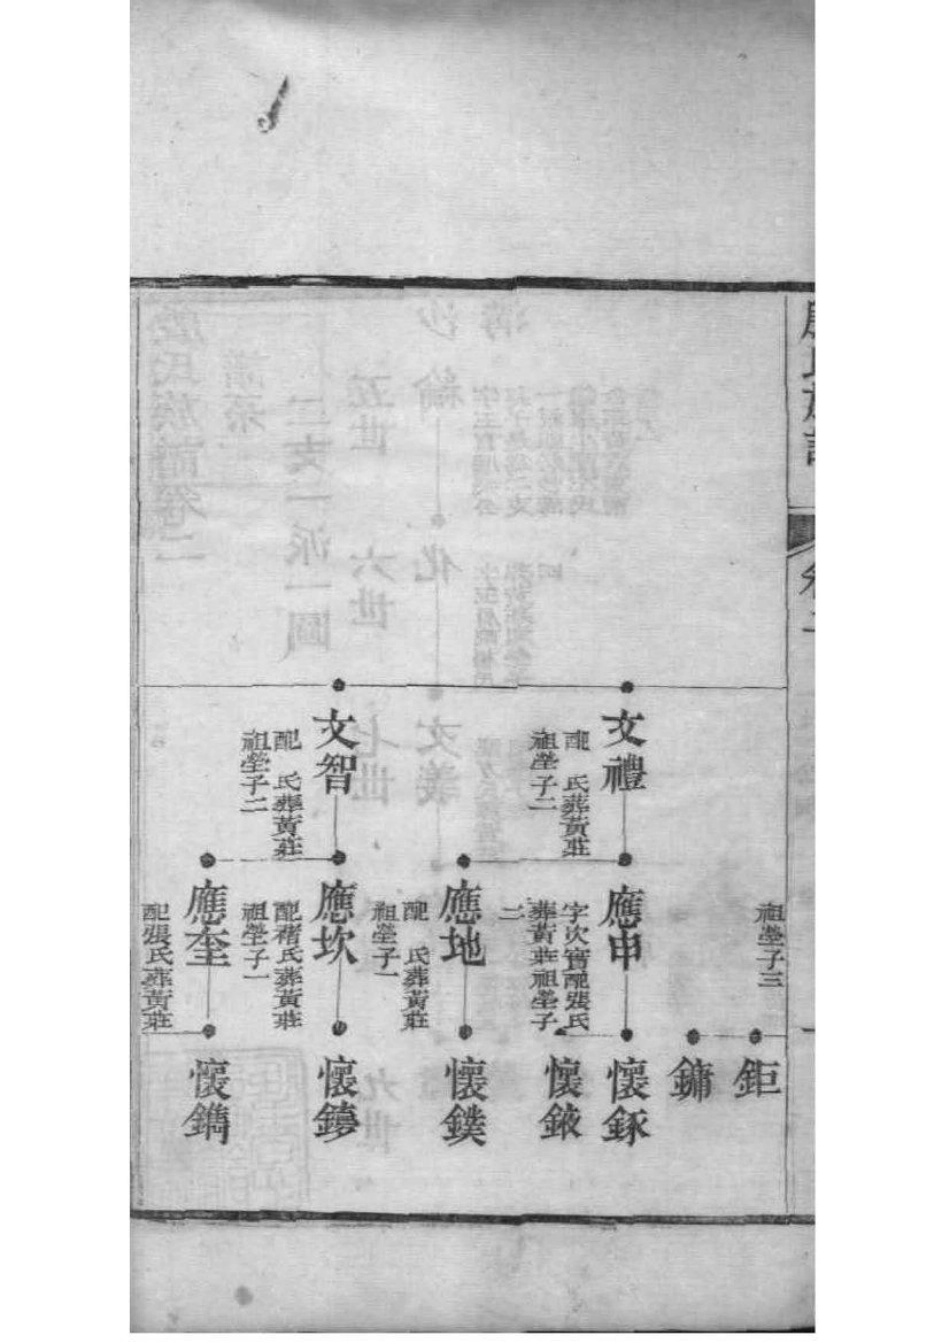 氏族譜
卷二
祖塋子三
鉅
鏞
文禮
配　氏葬黃莊
祖塋子二
應申
字次寶配張氏
葬黃莊祖塋子
二
懷鉌
懷鉽
應地
配　氏葬黃莊
祖塋子一
懷鏷
文智
配　氏葬黃莊
祖塋子二
應坎
配褚氏葬黃莊
祖塋子一
懷鏺
應奎
配張氏葬黃莊
懷鐫